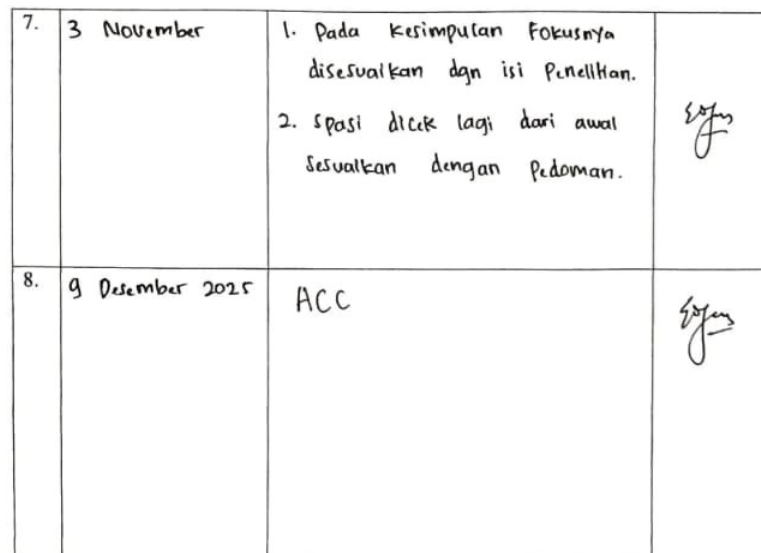 7. 3 November 1. Pada Kesimpulan Fokusnya
disesuaikan dgn isi Penelitian.
2. Spasi dicek lagi dari awal
Sesuaikan dengan Pedoman.
8. 9 Desember 2025 ACC